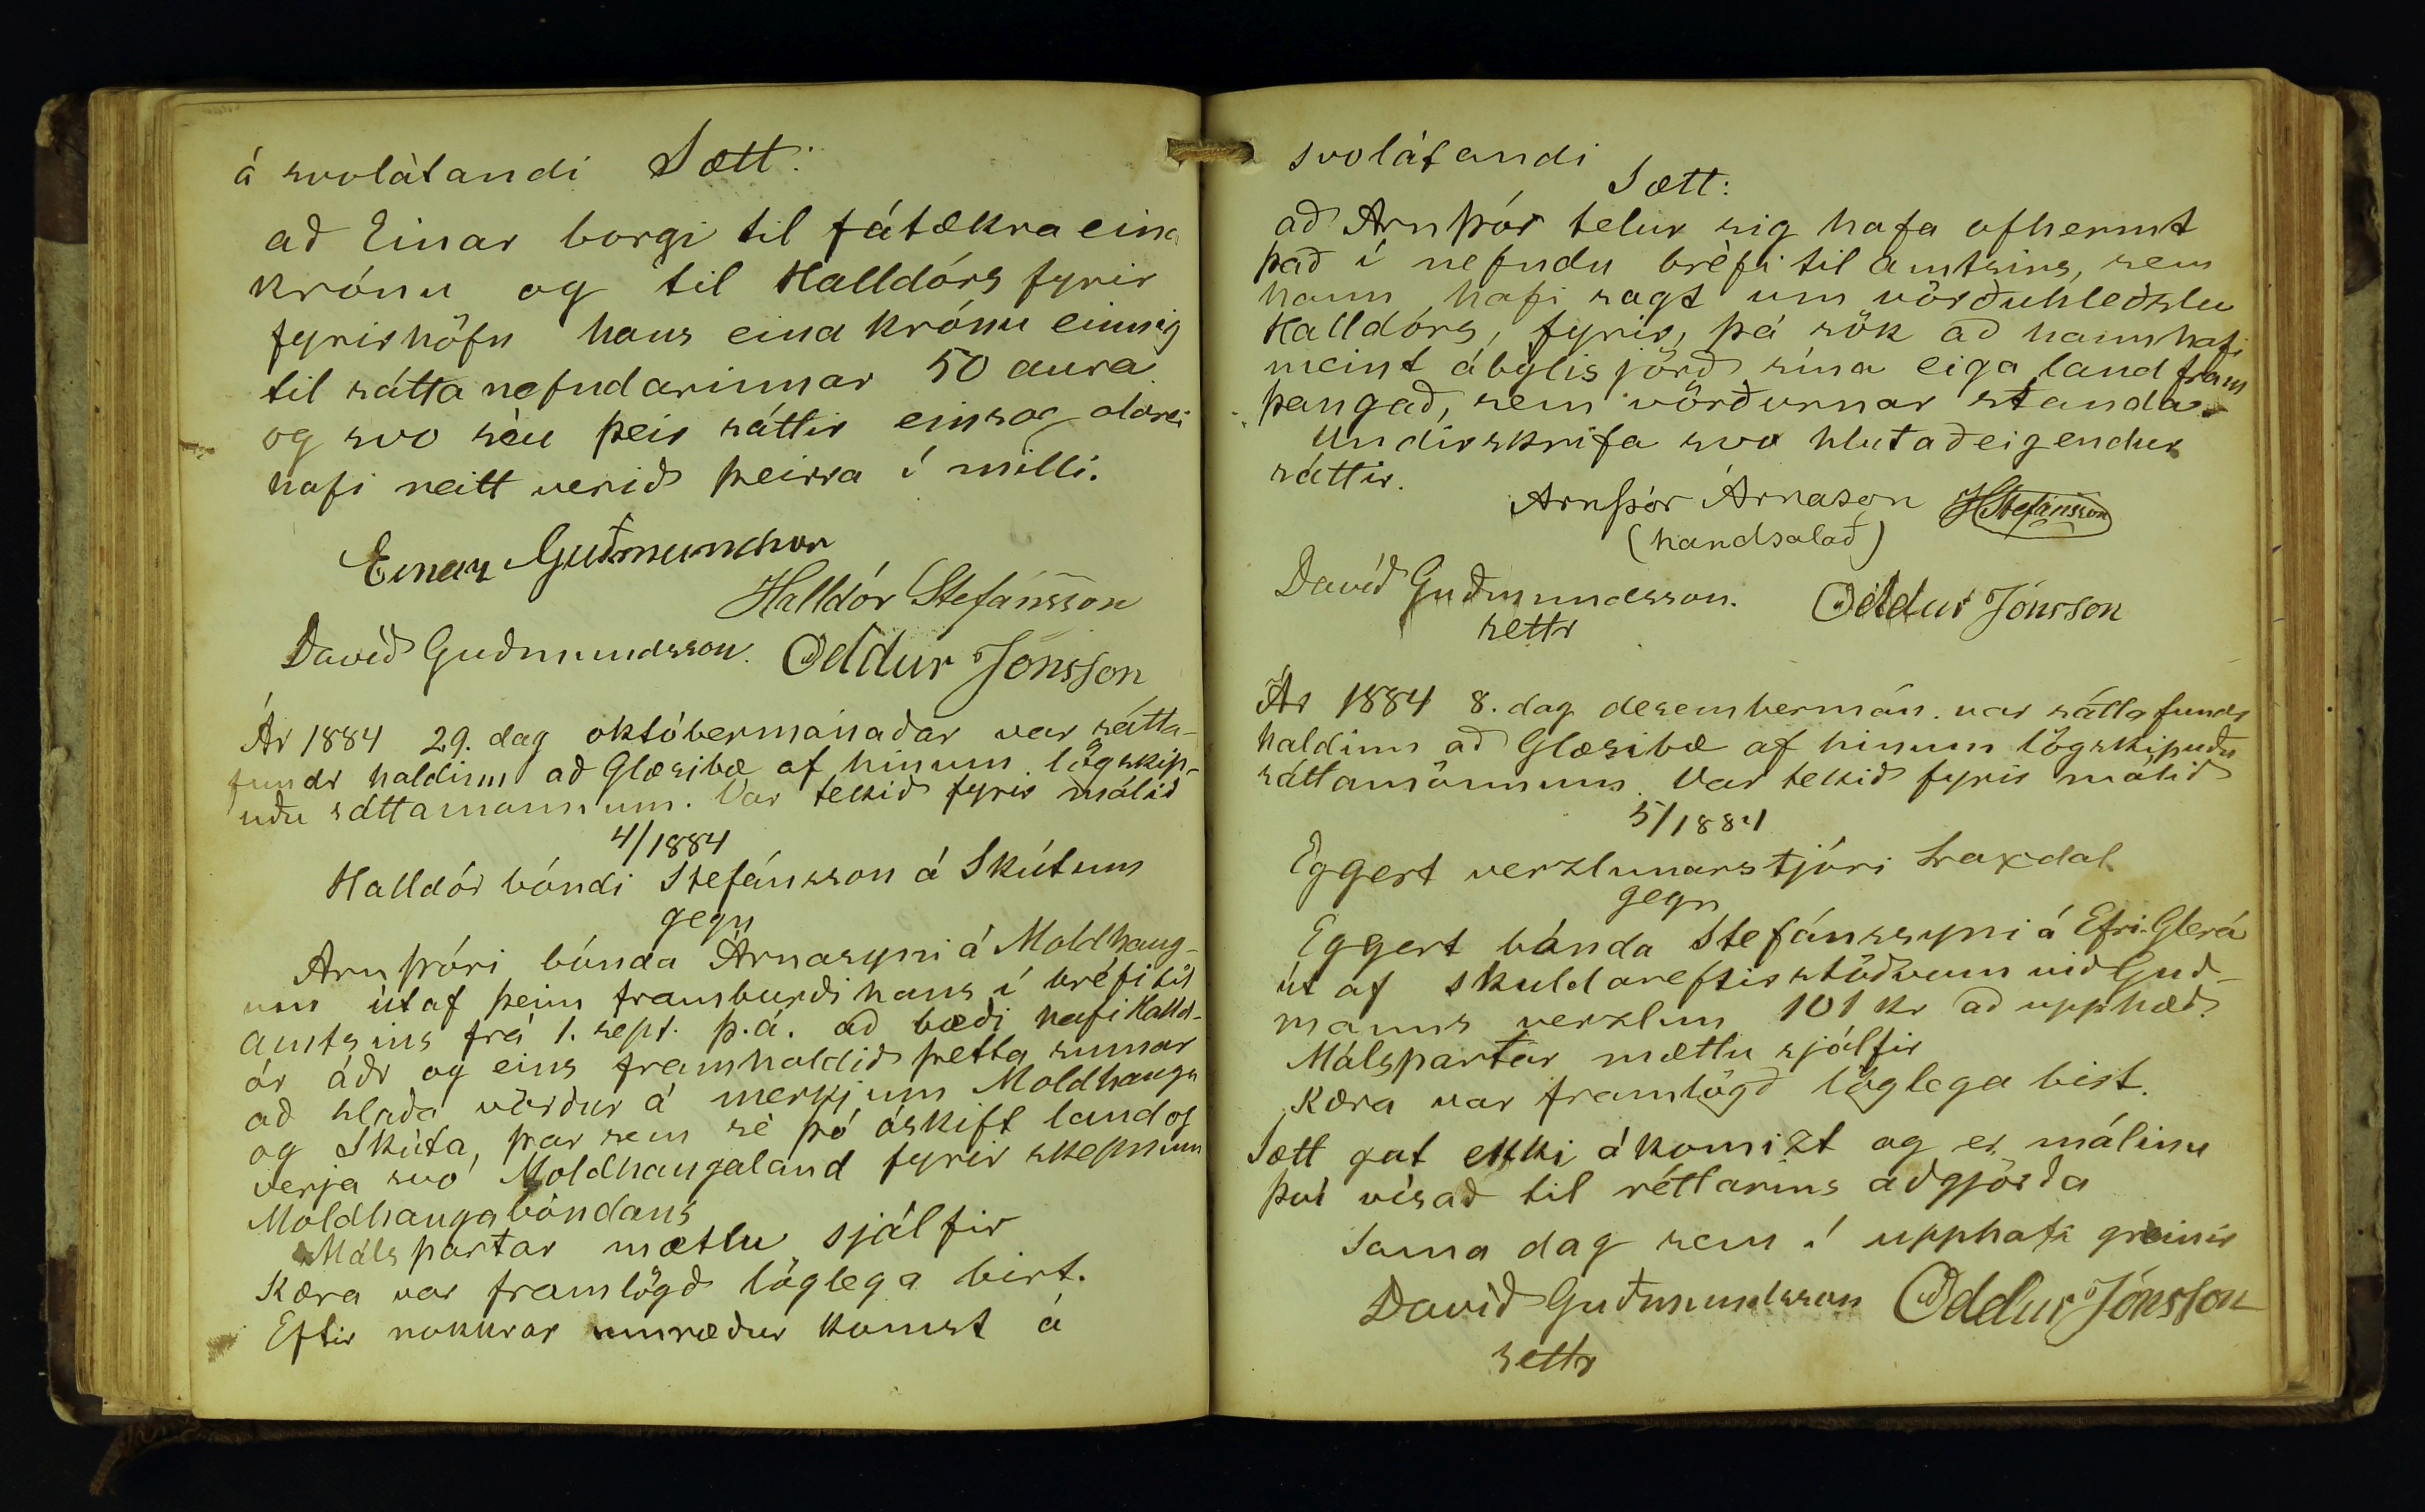 á svolátandi Sætt:
að Einar borgi til fátækra eina
krónu og til Halldórs fyrir
fyrirhöfn hans eina krónu einnig
til sáttanefndarinnar 50 aura
og svo séu þeir sáttir einsog aldrei
hafi neitt verið þeirra í milli.
Einar Guðmundsson
Halldór Stefánsson
Davíð Guðmundsson. Oddur Jónsson
Ár 1884 29. dag októbermánaðar var sátta-
fundr haldinn að Glæsibæ af hinum lögskip-
uðu sáttamönnum. Var tekið fyrir málið
4/1884
Halldór bóndi Stefánsson á Skútum
gegn
Arnþóri bónda Árnasyni á Moldhaug-
um útaf þeim framburði hans í bréfi til
amtsins frá 1. sept. þ.á. að bæði hafi Halld-
ór áðr og eins framhaldið þetta sumar
að hlaða vörður á merkjum Moldhauga
og Skúta, þar sem sé þó óskift land og
verja svo Moldhaugaland fyrir skepnum
Moldhaugabóndans
Málspartar mættu sjálfir
Kæra var framlögð löglega birt.
Eftir nokkrar umræður komst á
svolátandi
Sætt:
að Arnþór telur sig hafa ofhermt
það í nefndu bréfi til amtsins, sem
hann hafi sagt um vörðuhleðslu
Halldórs, fyrir þá sök að hann hafi
meint ábýlisjörð sína eiga land fram
þangað, sem vörðurnar standa.
Undirskrifa svo hlutaðeigendur
sáttir.
Arnþór Árnason HStefánsson
(handsalað)
Davíð Guðmundsson. Oddur Jónsson
settr
Ár 1884 8. dag desembermán. var sáttafundr
haldinn að Glæsibæ af hinum lögskipuðu
sáttamönnum. Var tekið fyrir málið
5/1884
Eggert verzlunarstjóri Laxdal
gegn
Eggert bónda Stefánssyni á Efri-Glerá
út af skuldareftirstöðvum við Guð-
manns verzlun 101 kr að upphæð.
Málspartar mættu sjálfir
Kæra var framlögð löglega birt.
Sætt gat ekki ákomizt og er málinu
því vísað til réttarins aðgjörða
Sama dag sem í upphafi greinir
Davíð Guðmundsson Oddur Jónsson
settr